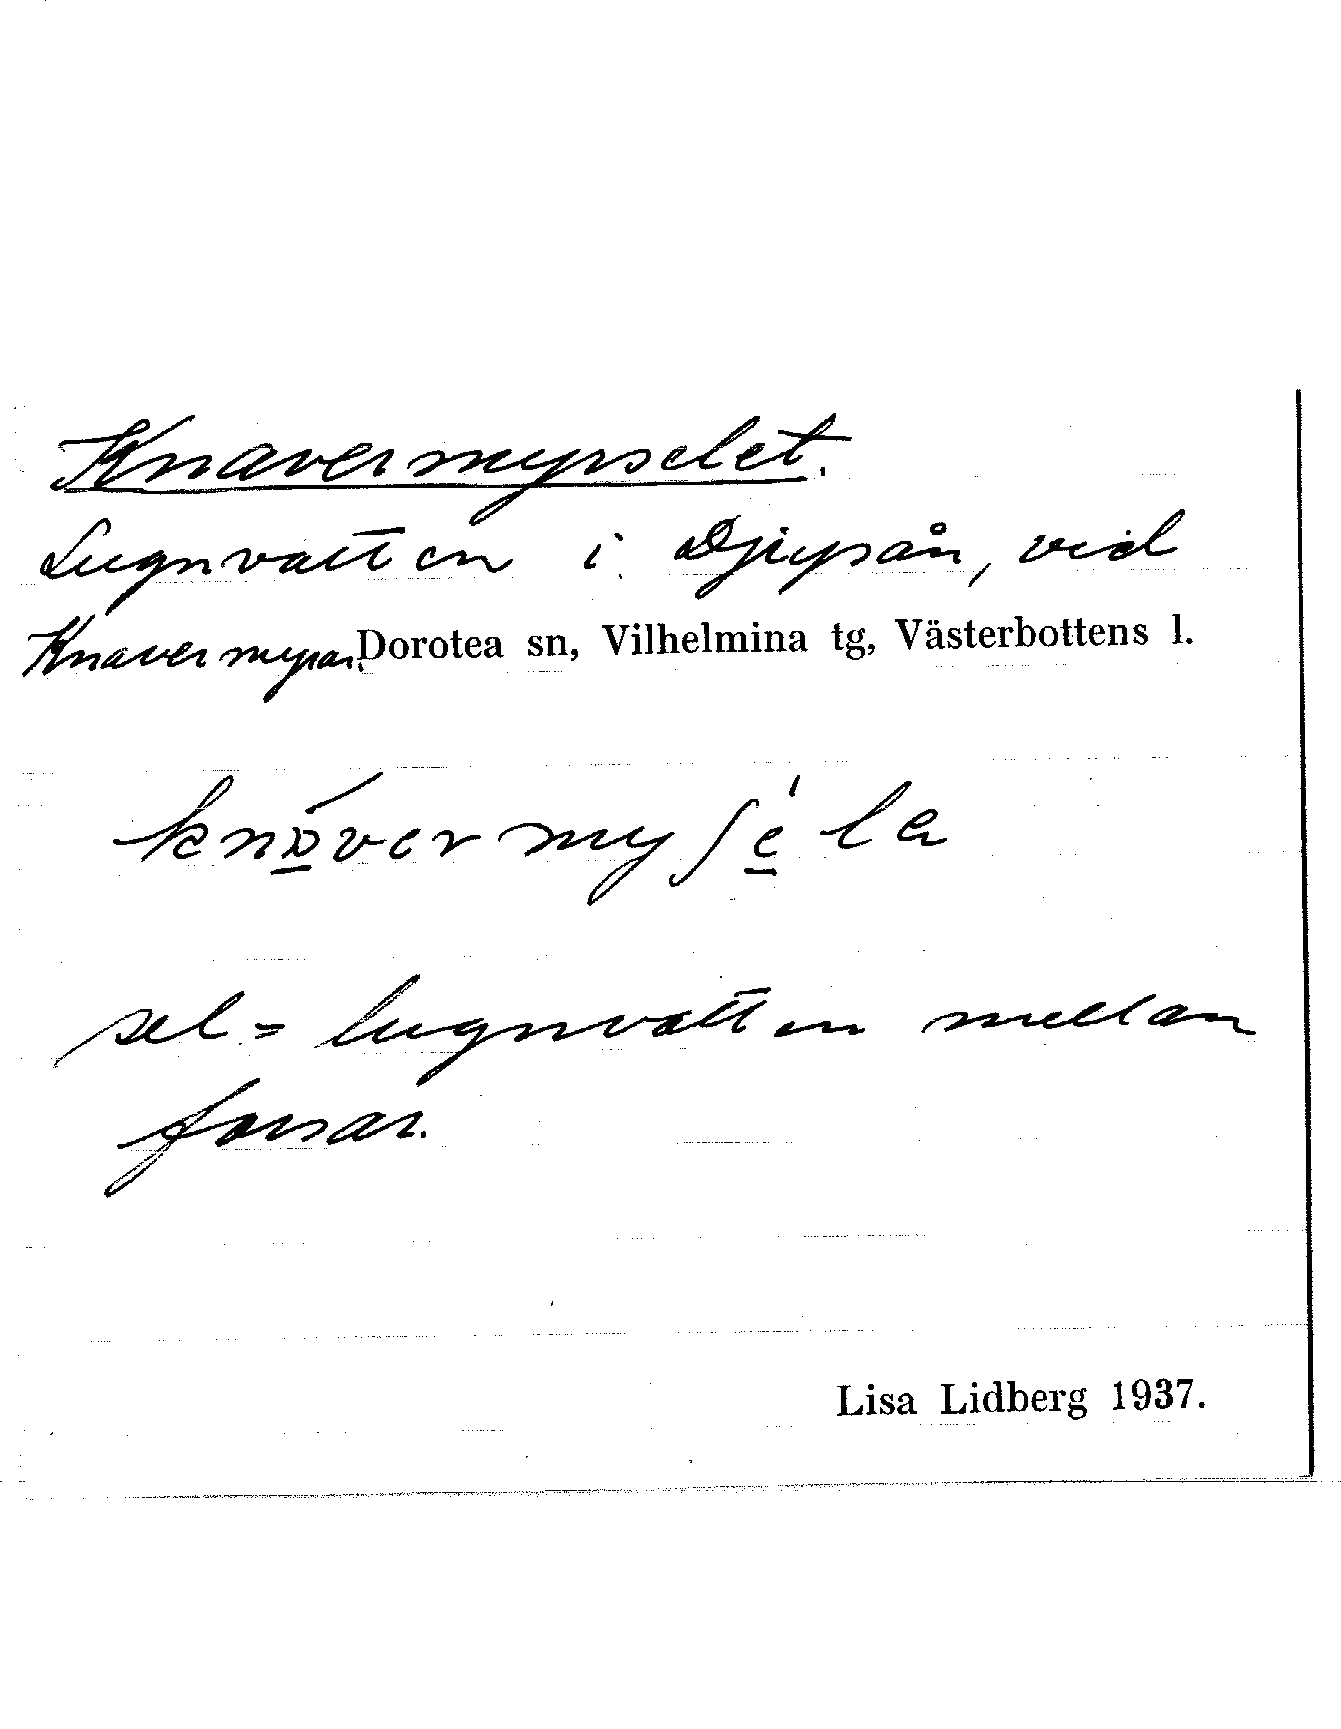 Knavermyrselet.
Lugnvatten i Djupsån, vid
Knavermyran. Dorotea sn, Vilhelmina tg, Västerbottens l.
sel = lugnvatten mellan
forsar.
Lisa Lidberg 1937.